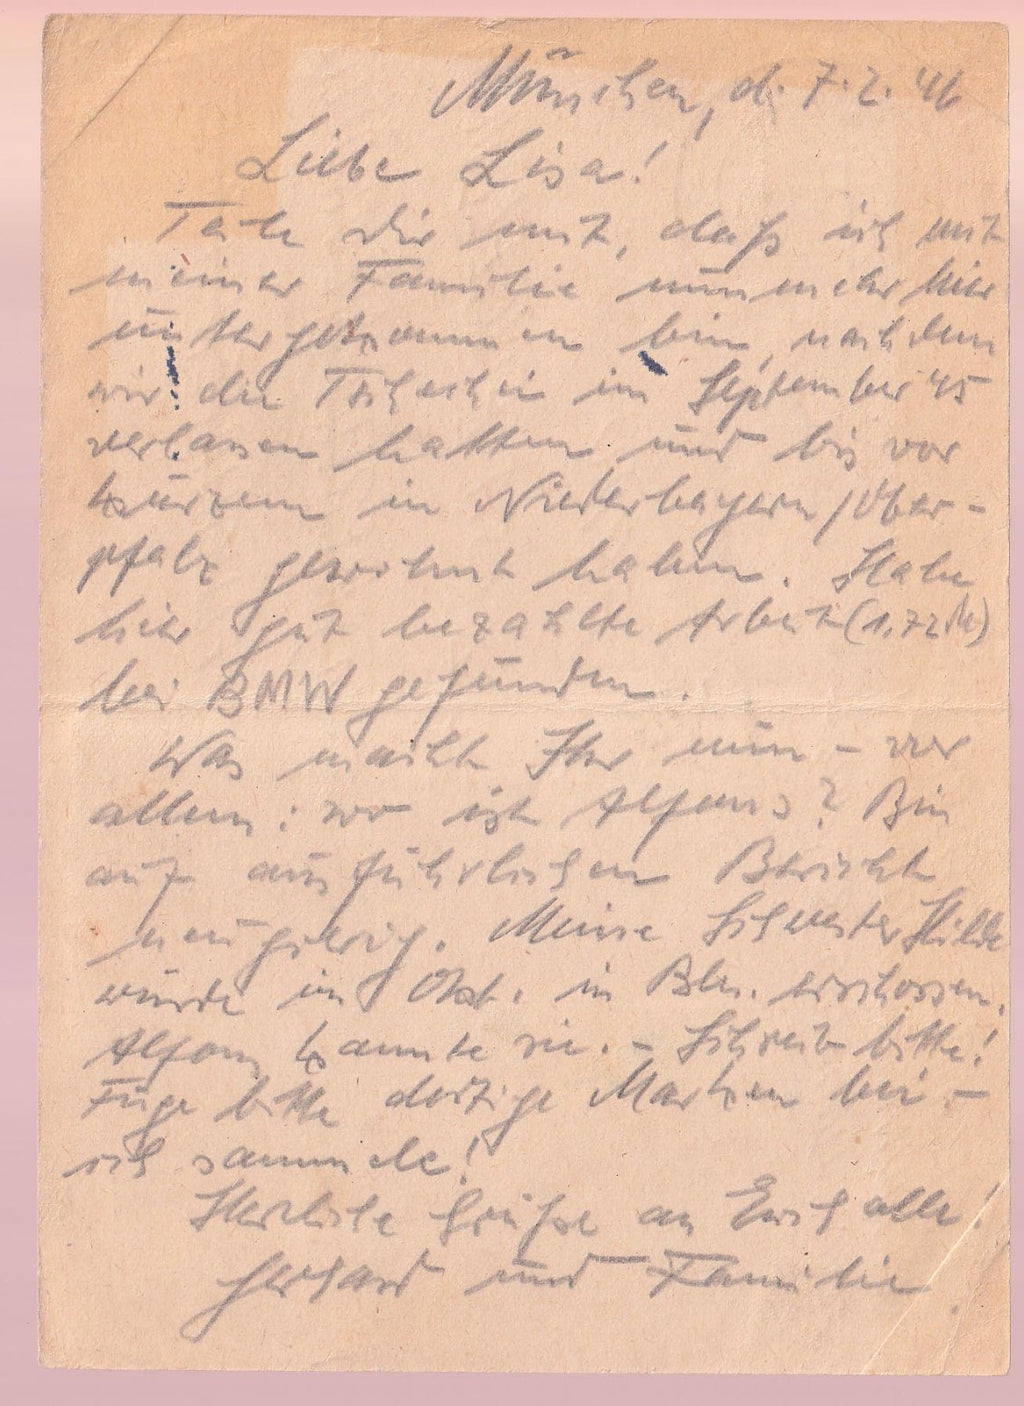 München, d. 7.2.'46
Liebe Lisa!
Teile Dir mit, daß ich mit
meiner Familie nunmehr hier
untergekommen bin, nachdem
wir die Tschechei im September '45
verlassen hatten und bis vor
kurzem in Niederbayern/Ober-
pfalz gewohnt haben. Habe
hier gut bezahlte Arbeit (1.72
bei BMW gefunden.
Was macht Ihr nun – vor
allem: wo ist Alfons? Bin
auf ausführlichen Bericht
neugierig. Meine Schwester Hilde
wurde im Okt. in Bln. erschossen.
Alfons kannte sie. – Schreib bitte!
Füge bitte dortige Marken bei –
ich sammele!
Herzliche Grüße an Euch alle!
Gerhard und Familie.